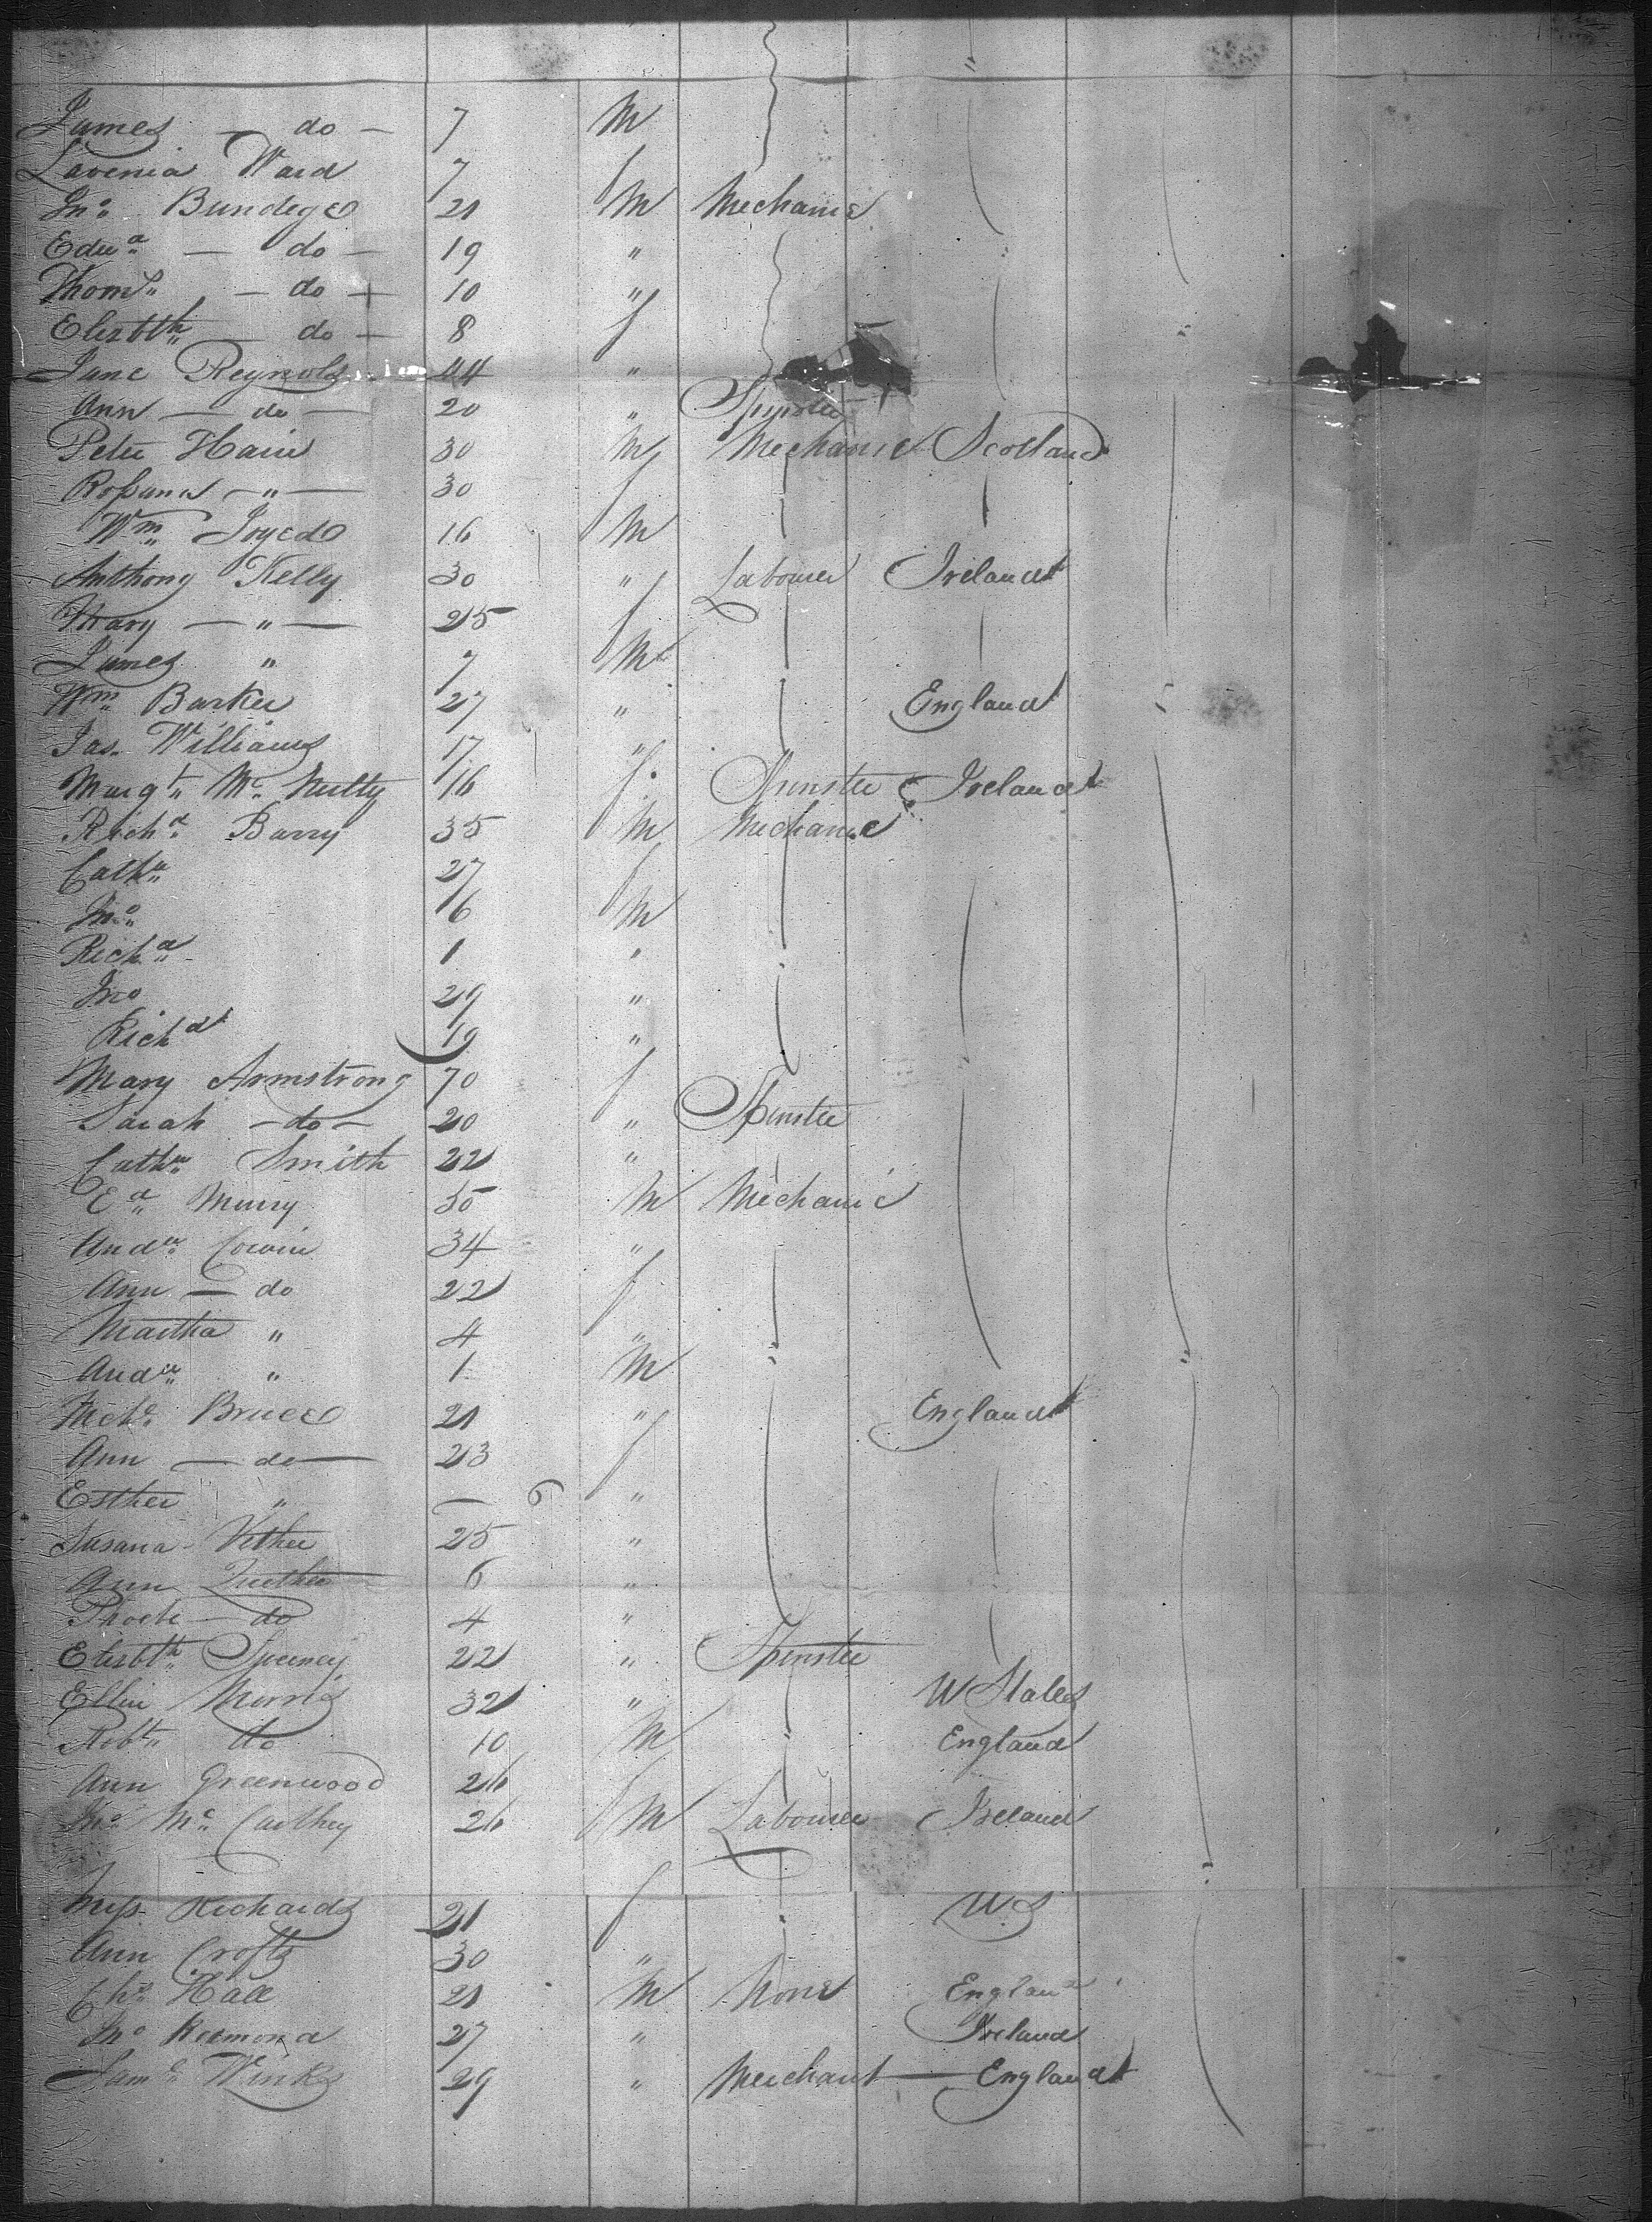 James — do — 7 M
Lavenia Ward 7 f
Jno. Bundege 21 M Mechanic
Edwd. — do — 19 "
Thoms. — do — 10 "
Elizbth. — do — 8 f
Jane Reynolds 44 "
Ann — do — 20 " Spinster
Peter Hain 30 M Mechanic Scotland
Rosanna — " — 30 f
Wm. 16 M
Anthony Kelly 30 " Labourer Ireland
Mary — " — 25 f
James " 7 M
Wm. Barker 27 " England
Jas. Williams 17 "
Margt. Mc. Nulty 16 f Spinster Ireland
Richd. Barry 35 M Mechanic
Cathe. 27 f
Jno. 6 M
Richd. 1 "
Jno 29 "
Richd 19 "
Mary Armstrong 70 f
Sarah — do — 20 " Spinster
Cathe. Smith 22 "
Ed. Murry 35 M Mechanic
Andw. Corwin 34 "
Ann — do 22 f
Martha " 4 "
Andw. " 1 M
Mchl. Bruce 21 " England
Ann — do — 23 f
Esther " — 6 "
Susana 25 "
Ann 6 "
Phoebe — do 4 "
Elizbth. Sweeney 22 " Spinster
Ellin Morris 32 " U States
Robt. do 10 M England
Ann Greenwood 26 f
Jno. Mc. Carthey 26 M Labourer Ireland
Miss Richards 21 f U S
Ann Crofts 30 "
Chs. Hall 21 M None England
Jno Redmond 27 " Ireland
Saml. Winks 29 " Merchant — England